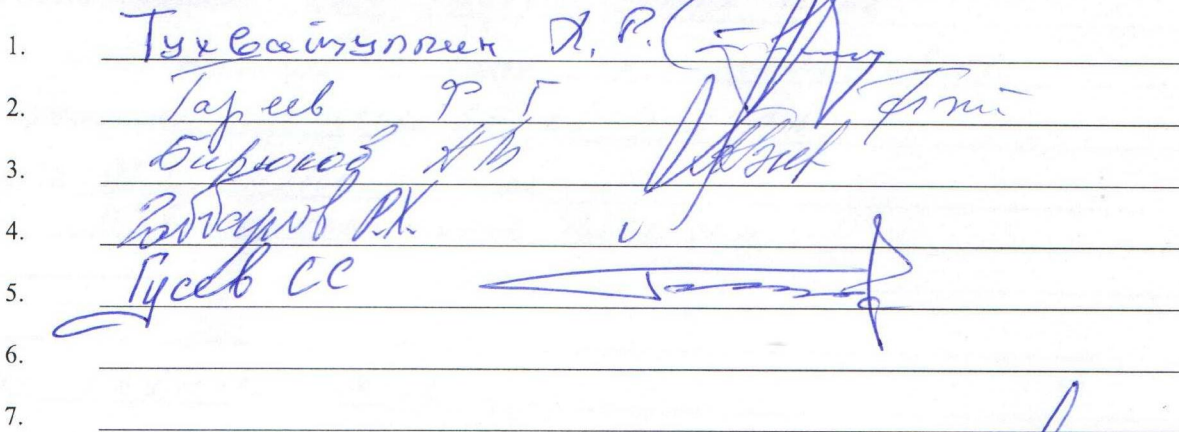 1. Тухватуллин Х. Р.
2. Гареев Ф Г
3. Бирюков АВ
4. Габбаров Р.Х.
5. Гусев СС
6.
7.